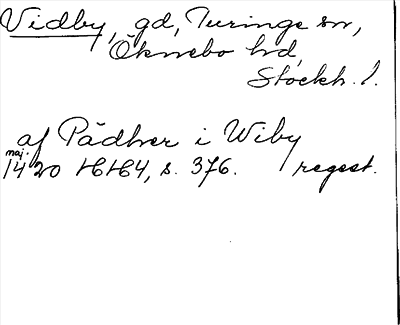 Vidby, gd, Turinge sn,
Öknebo hd,
Stockh. l.
af Pädher i Wiby
maj.
1420 HH 4, s. 376. regest.